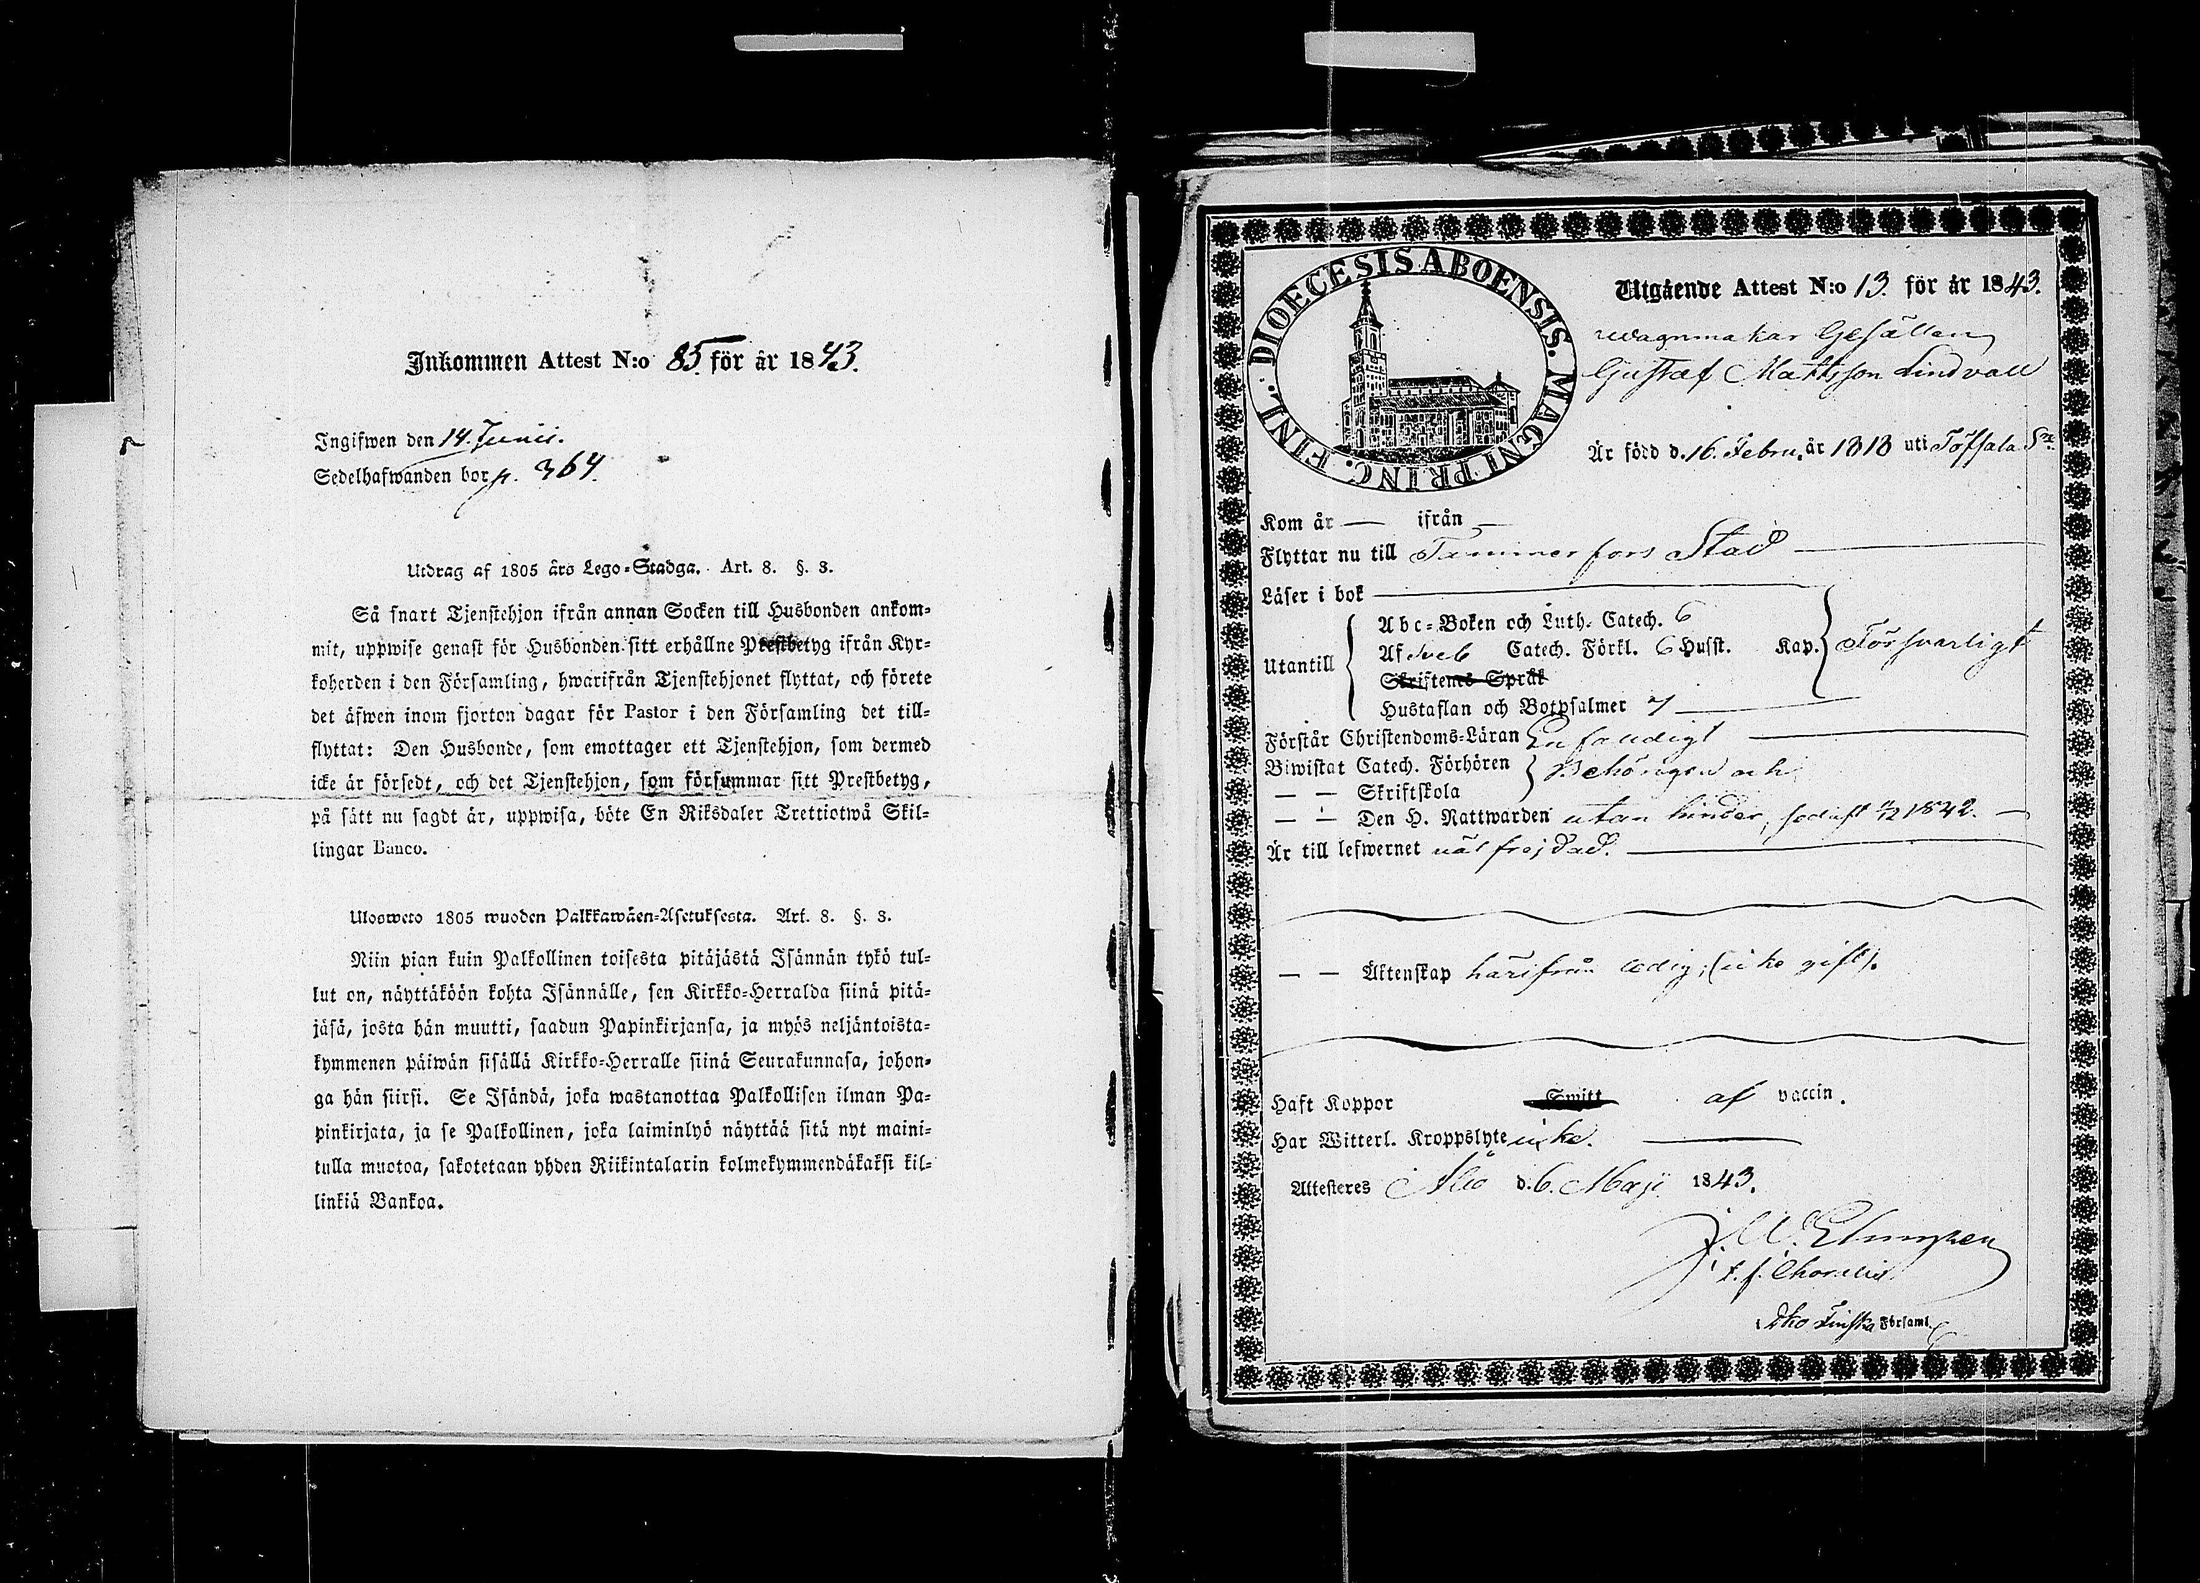 Inkommen Attest N:o 85 för år 1843.
Ingifwen den 14. Junii.
Sedelhafwanden bor p. 364.
Utdrag af 1805 års Lego-Stadga. Art. 8. §. 3.
Så snart Tjenstehjon ifrån annan Socken till Husbonden ankom-
mit, uppwise genast för Husbonden sitt erhållne Prestbetyg ifrån Kyr-
koherden i den Församling, hwarifrån Tjenstehjonet flyttat, och förete
det äfwen inom fjorton dagar för Pastor i den Församling det till-
flyttat: Den Husbonde, som emottager ett Tjenstehjon, som dermed
icke är försedt, och det Tjenstehjon, som försummar sitt Prestbetyg,
på sätt nu sagdt är, uppwisa, böte En Riksdaler Trettiotwå Skil-
lingar Banco.
Ulosweto 1805 wuoden Palkkawäen-Asetuksesta. Art. 8. §. 3.
Niin pian kuin Palkollinen toisesta pitäjästä Isännän tykö tul-
lut on, näyttäköön kohta Isännälle, sen Kirkko-Herralda siinä pitä-
jäsä, josta hän muutti, saadun Papinkirjansa, ja myös neljäntoista-
kymmenen päiwän sisällä Kirkko-Herralle siinä Seurakunnasa, johon-
ga hän siirsi. Se Isändä, joka wastanottaa Palkollisen ilman Pa-
pinkirjata, ja se Palkollinen, joka laiminlyö näyttää sitä nyt maini-
tulla muotoa, sakotetaan yhden Riikintalarin kolmekymmendäkaksi kil-
linkiä Bankoa.
DIOECESIS ABOENSIS. MAGNI PRINC. FINL.
Utgående Attest N:o 13. för år 1843.
wagnmakar Gesällen
Gustaf Mattsson Lindvall
Är född d. 16. Febru. år 1818 uti Töfsala Sn.
Kom år — ifrån —
Flyttar nu till Tammerfors Stad
Läser i bok
Abc-Boken och Luth. Catech. 6
Utantill Af Sveb Catech. Förkl. 6 Husst. Kap. Försvarligt
Skriftenes Språk
Hustaflan och Botpsalmer 7
Förstår Christendoms-Läran Enfaldigt
Biwistat Catech. Förhören Behörigen och
— — Skriftskola
— — Den H. Nattwarden utan hinder, sednast 1/2 1842.
Är till lefwernet väl frejdad.
— — Äktenskap härifrån ledig, (icke gift).
Haft Koppor Smitt af vaccin.
Har Witterl. Kroppslyte icke.
Attesteres Åbo d. 6. Maji 1843.
t. f.
Åbo Finska Församl.